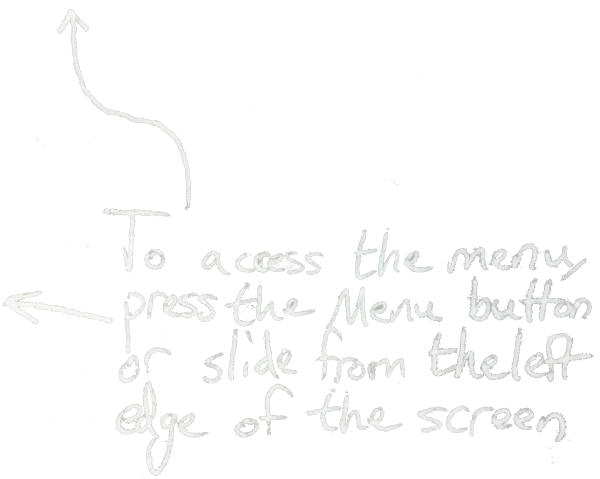 To access the menu,
press the Menu button
or slide from the left
edge of the screen